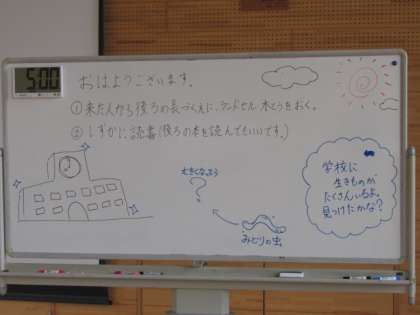 5:00
おはようございます。
①来た人から後ろの長づくえに、ランドセル、水とうをおく。
②しずかに読書(後ろの本を読んでもいいです。)
学校に
生きものが
たくさんいるよ。
見つけたかな?
大きくなあう
?
みどりの虫